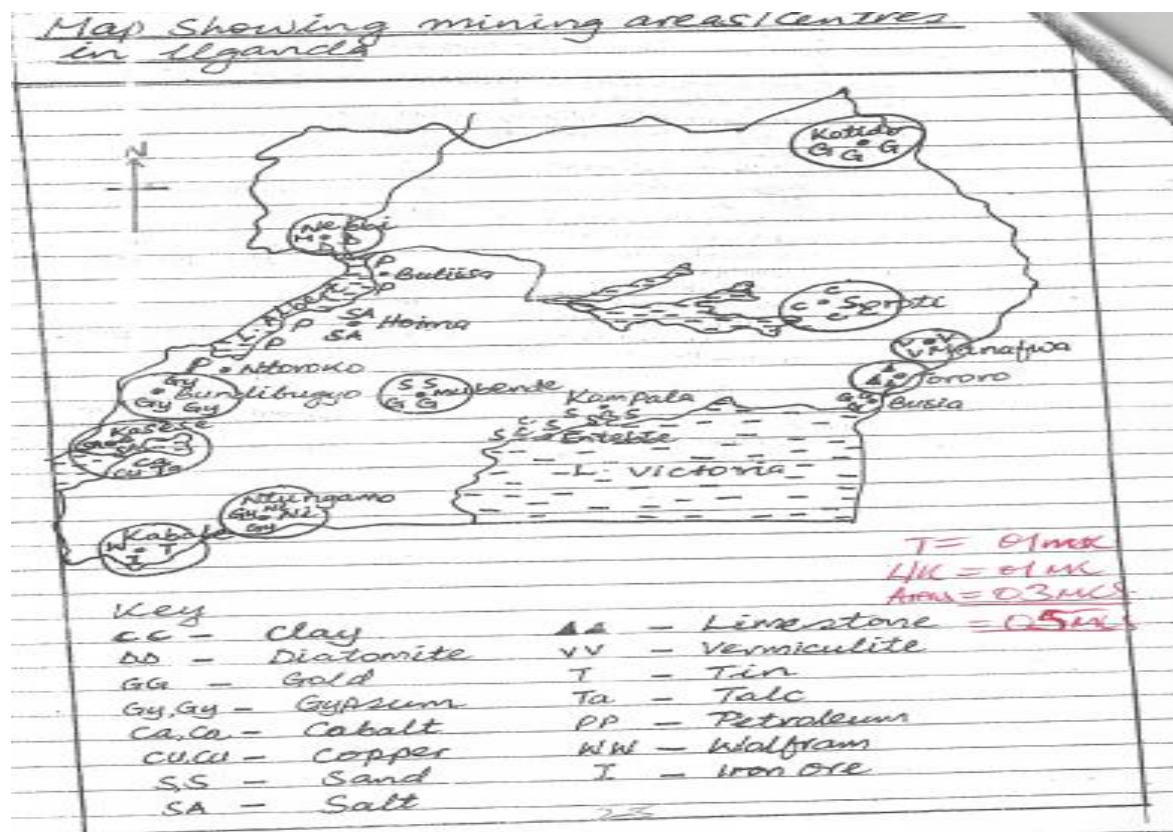 Map Showing mining areas/Centres
in Uganda
N
Kotido
G G G
Nebbi
M D
D
P
Buliisa
P
L. Albert
SA
Hoima
SA
P
P
C
C Soroti
C C
V V
V Manafwa
P
Ntoroko
Gy
Bundibugyo
Gy Gy
S S
Mubende
G G
Tororo
Kampala
Busia
S G S
Entebbe
Kasese
Ca
Cu Ta
L. Victoria
Ntungamo
Gy Ni
Gy
Kabale
W T
I
T = 01 mk
L/K = 01 MK
Areas = 03 MKS
= 05 MKS
Key
CC - Clay
DD - Diatomite
GG - Gold
Gy,Gy - Gypsum
Ca,Ca - Cabalt
CU,CU - Copper
S,S - Sand
SA - Salt
- Limestone
VV - Vermiculite
T - Tin
Ta - Talc
PP - Petroleum
WW - Wolfram
I - Iron Ore
23